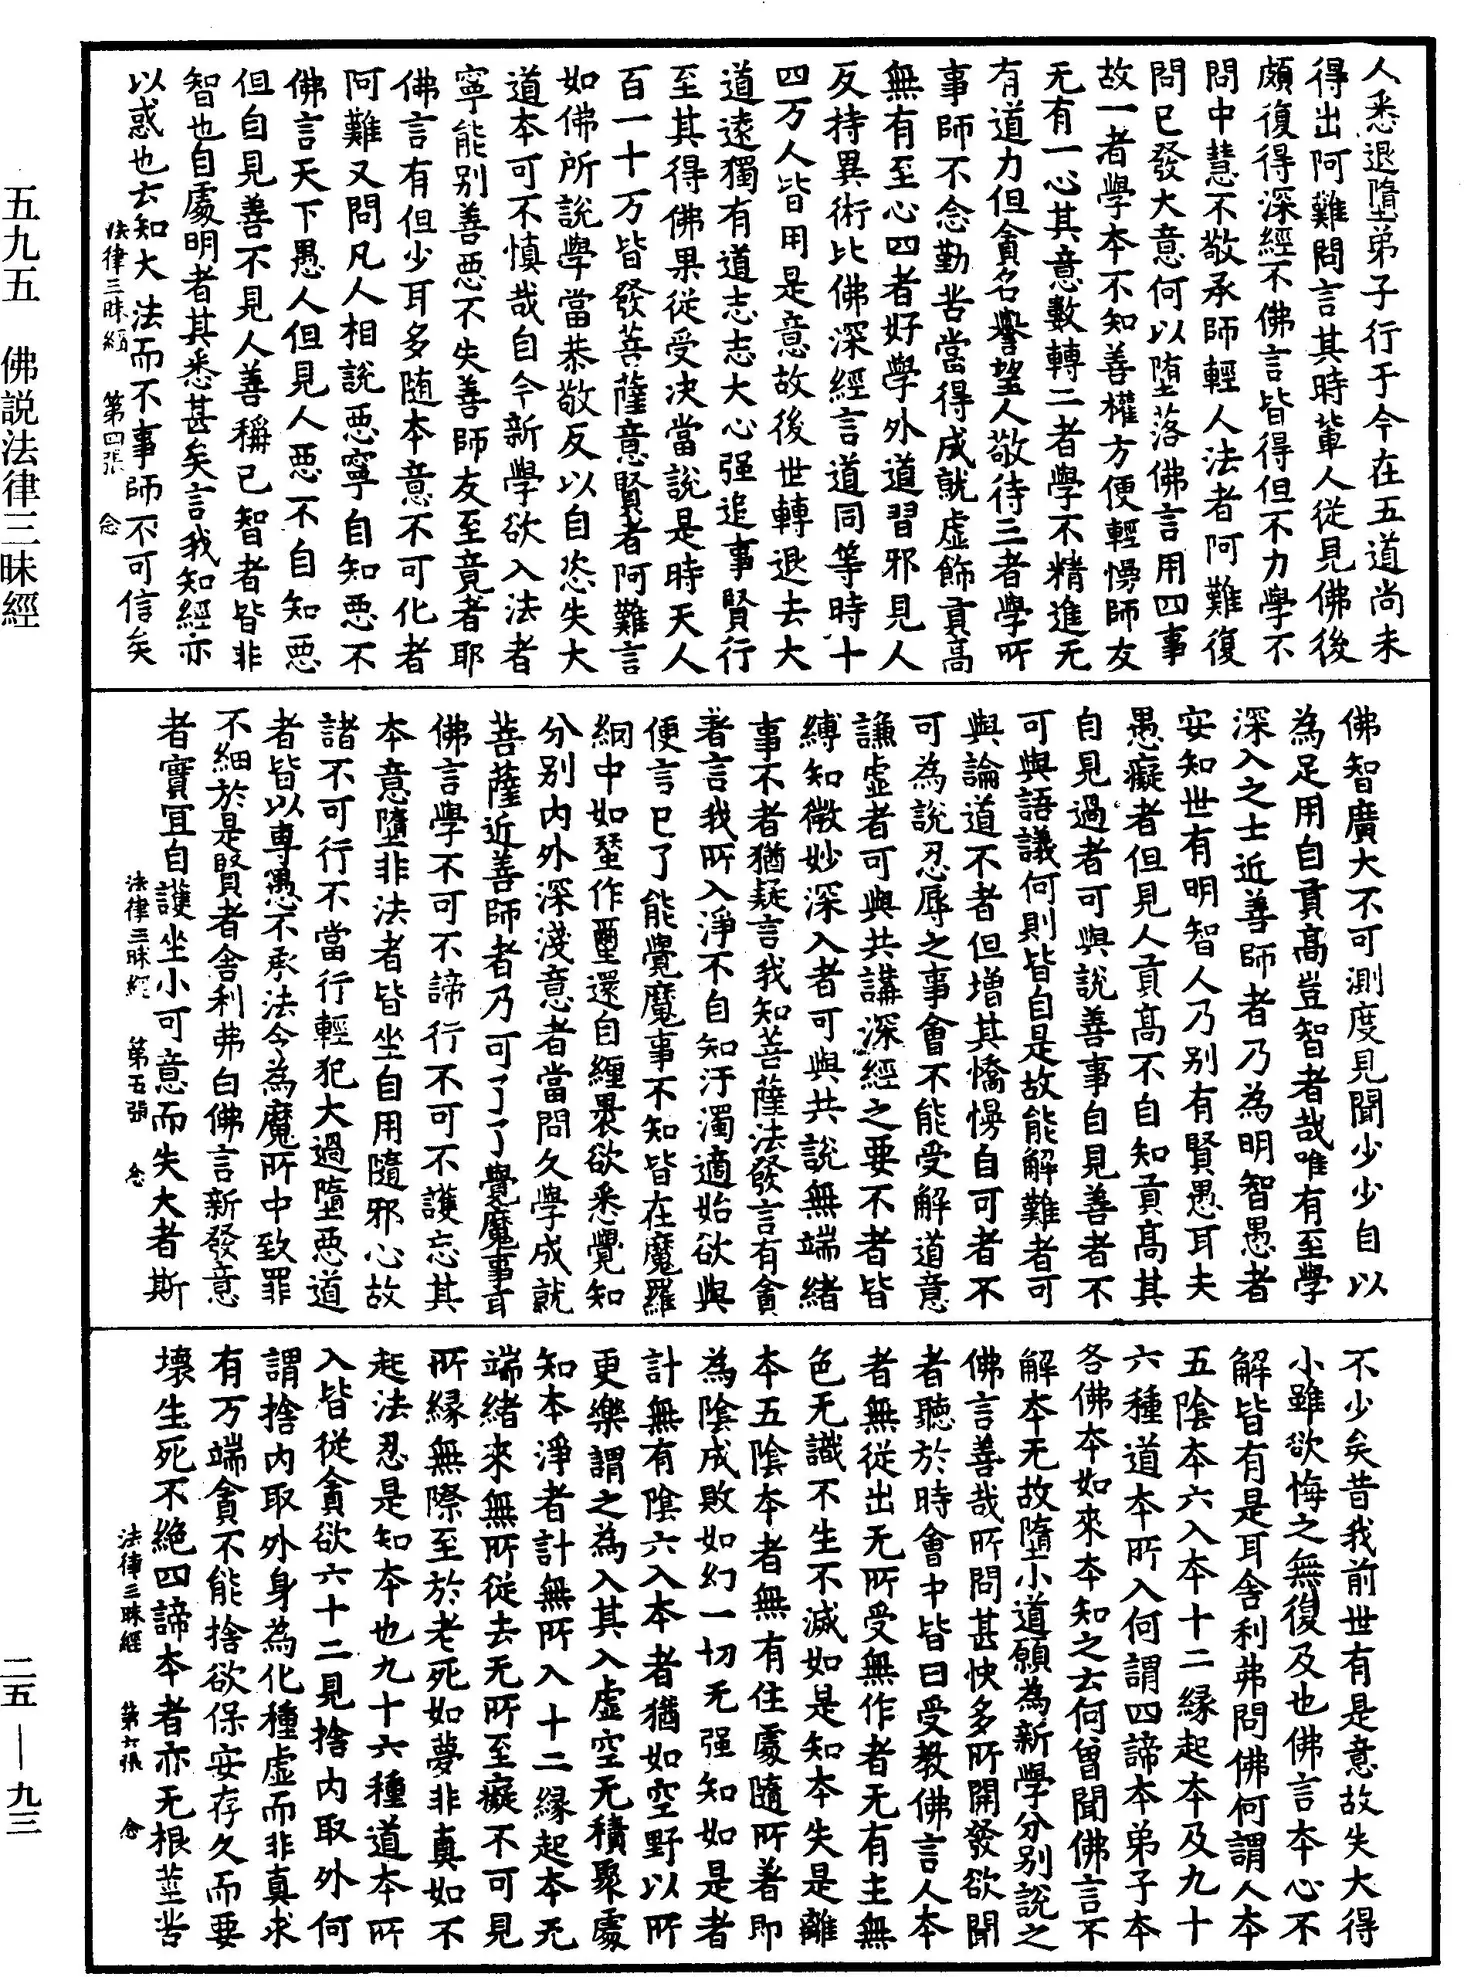 五九五　佛說法律三昧經
人悉退墮弟子行于今在五道尚未
得出阿難問言其時輩人從見佛後
頗復得深經不佛言皆得但不力學不
問中慧不敬承師輕人法者阿難復
問已發大意何以堕落佛言用四事
故一者學本不知善權方便輕慢師友
无有一心其意數轉二者學不精進无
有道力但貪名譽望人敬待三者學所
事師不念勤苦當得成就虛飾貢高
無有至心四者好學外道習邪見人
反持異術比佛深經言道同等時十
四万人皆用是意故後世轉退去大
道遠獨有道志志大心强追事賢行
至其得佛果從受決當說是時天人
百一十万皆發菩薩意賢者阿難言
如佛所說學當恭敬反以自恣失大
道本可不慎哉自今新學欲入法者
寧能别善惡不失善師友至竟者耶
佛言有但少耳多随本意不可化者
阿難又問凡人相說惡寧自知惡不
佛言天下愚人但見人惡不自知惡
但自見善不見人善稱已智者皆非
智也自處明者其悉甚矣言我知經亦
以惑也去知大法而不事師不可信矣
法律三昧經　第四張　念
佛智廣大不可測度見聞少少自以
為足用自貢高豈智者哉唯有至學
深入之士近善師者乃為明智愚者
安知世有明智人乃别有賢愚耳夫
愚癡者但見人貢高不自知貢高其
自見過者可與說善事自見善者不
可與語議何則皆自是故能解難者可
與論道不者但增其憍慢自可者不
可為說忍辱之事會不能受解道意
謙虛者可與共講深經之要不者皆
縛知微妙深入者可與共說無端緒
事不者猶疑言我知菩薩法發言有貪
著言我所入淨不自知汙濁適始欲與
便言已了能覺魔事不知皆在魔羅
網中如蛬作壐還自纏裹欲悉覺知
分别内外深淺意者當問久學成就
菩薩近善師者乃可了了覺魔事耳
佛言學不可不諦行不可不護忘其
本意墮非法者皆坐自用隨邪心故
諸不可行不當行輕犯大過墮惡道
者皆以專愚不承法令為魔所中致罪
不細於是賢者舍利弗白佛言新發意
者實冝自護坐小可意而失大者斯
法律三昧經　第五張　念
不少矣昔我前世有是意故失大得
小雖欲悔之無復及也佛言本心不
解皆有是耳舍利弗問佛何謂人本
五陰本六入本十二緣起本及九十
六種道本所入何謂四諦本弟子本
各佛本如來本知之去何曾聞佛言不
解本无故墮小道願為新學分别說之
佛言善哉所問甚快多所開發欲聞
者聽於時會中皆曰受教佛言人本
者無從出无所受無作者无有主無
色无識不生不滅如是知本失是離
本五陰本者無有住處隨所著即
為陰成敗如幻一切无强知如是者
計無有陰六入本者猶如空野以所
更樂謂之為入其入虛空无積聚處
知本淨者計無所入十二緣起本无
端緒來無所從去无所至癡不可見
所緣無際至於老死如夢非真如不
起法忍是知本也九十六種道本所
入皆從貪欲六十二見捨内取外何
謂捨内取外身為化種虛而非真求
有万端貪不能捨欲保安存久而要
壞生死不絶四諦本者亦无根莖苦
法律三昧經　第六張　念
二五—九三